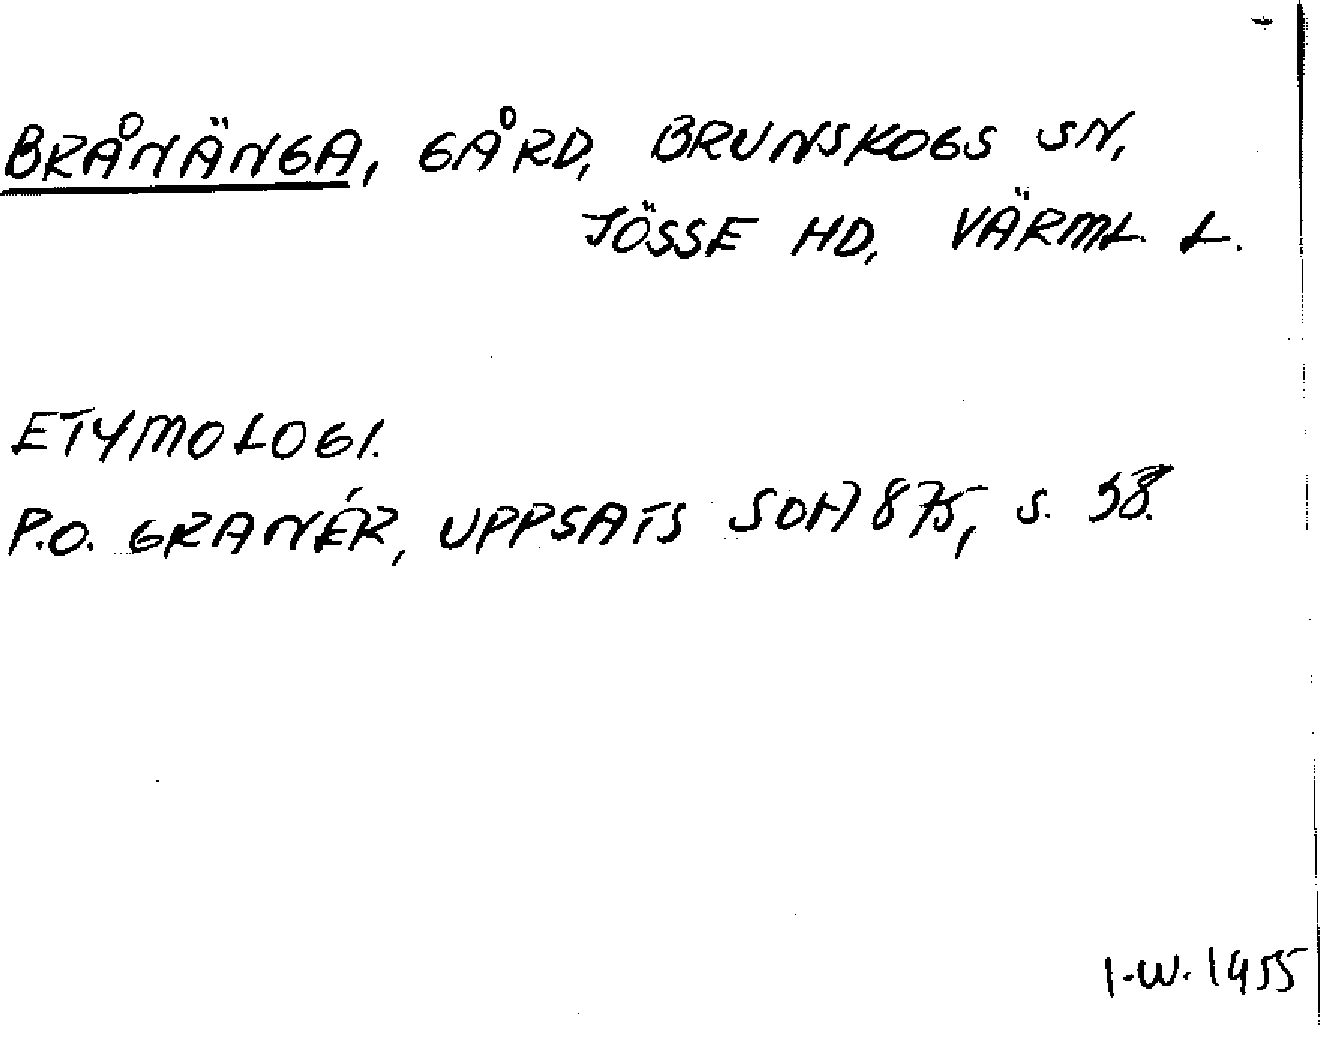 BRÅNÄNGA, GÅRD, BRUNSKOGS SN,
JÖSSE HD, VÄRML. L.
ETYMOLOGI.
P.O. GRANÉR, UPPSATS SOM 875, S. 38.
I.W. 1955